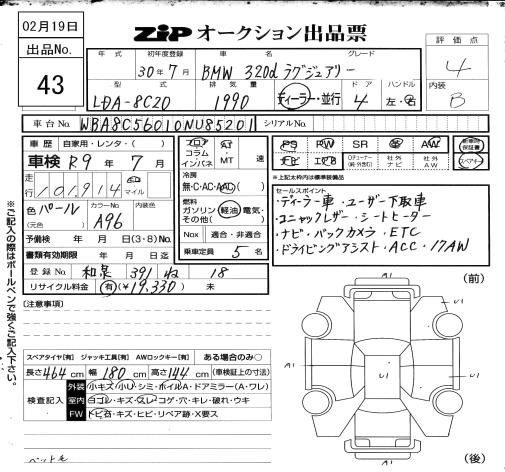 02月19日
ZIP オークション出品票
出品No.
43
評価点
4
内装
B
年式 初年度登録 車名 グレード
30年7月 BMW 320d ラグジュアリー
型式 排気量 ドア ハンドル
LDA-8C20 1990 ディーラー・並行 4 左・右
車台No. WBA8C56010NU85201 シリアルNo.
車歴 自家用・レンタ・( )
車検 R9年7月
走行 101,914 マイル
色 パール (元色) カラーNo. A96 内装色
予備検 年 月 日(3・8)No.
書類有効期限 年 月 日迄
登録No. 和泉 391 ね 18
リサイクル料金 (有)(¥19,330) 未
フロア コラム インパネ AT・MT 速
冷房
無・C・AC・AAC
燃料
ガソリン・軽油・電気・
その他( )
Nox 適合・非適合
乗車定員 5名
PS PW SR 革 AW 新車時保証書
ナビ エアB ◎チューナー(純正含む) 社外ナビ 社外AW スペアキー
※上記太枠内は標準装備品
セールスポイント
・ディーラー車・ユーザー下取車
・コニャックレザー・シートヒーター
・ナビ・バックカメラ・ETC
・ドライビングアシスト・ACC・17AW
※ご記入の際はボールペンで強くご記入下さい。
[注意事項]
スペアタイヤ[有] ジャッキ工具[有] AWロックキー[有] ある場合のみ○
長さ464cm 幅180cm 高さ144cm (車検証上の寸法)
検査記入
外装 小キズ・小U・シミ・ボイルA・ドアミラー(A・ワレ)
室内 ヨゴレ・キズ・スレ・コゲ・穴・キレ・破れ・ウキ
FW トビ石・キズ・ヒビ・リペア跡・X要ス
ペット毛
(前)
A1
U1
U1
A1
U1
A1
(後)